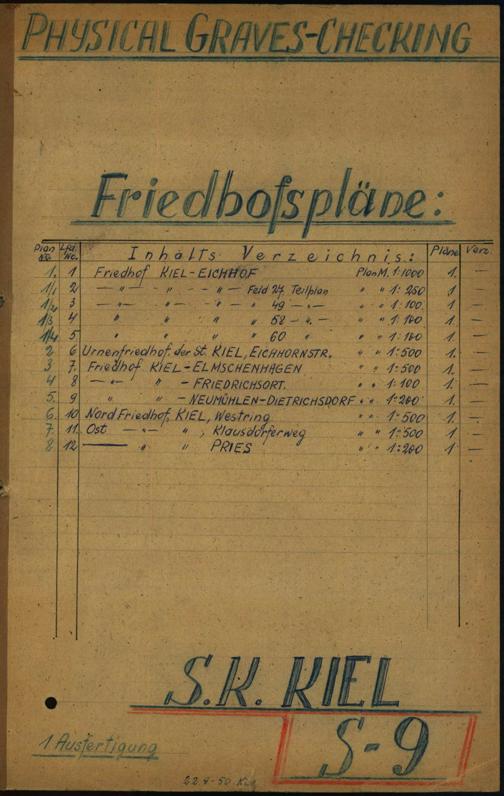 PHYSICAL GRAVES-CHECKING
Friedhofspläne:
Plan No. Lfd. No. Inhalts Verzeichnis: Pläne Verz.
1. 1 Friedhof KIEL-EICHHOF Plan M. 1:1000 1. —
1/1 2 — " — " " — " — Feld 27 Teilplan " " 1:250 1 —
1/2 3 — " — " " " 49 — " — " " 1:100 1. —
1/3 4 " " " " 58 — " — " " 1:100 1. —
1/4 5 " " " " 60 " " " 1:100 1 —
2 6 Urnenfriedhof der St. KIEL, EICHHORNSTR. " " 1:500 1 —
3 7. Friedhof KIEL-ELMSCHENHAGEN " " 1:500 1. —
4 8 — " — " — FRIEDRICHSORT. " " 1:100 1 —
5. 9 " " — NEUMÜHLEN-DIETRICHSDORF " " 1:200 1 —
6. 10 Nord Friedhof KIEL, Westring " " 1:500 1 —
7. 11. Ost — " — " , Klausdorferweg " " 1:500 1 —
8 12. —— " " PRIES " " 1:200 1. —
S.K. KIEL
S-9
1 Ausfertigung